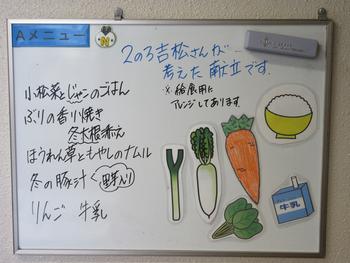 Aメニュー
2のろ吉松さんが
考えた献立です。
※給食用に
アレンジしてあります。
小松菜とじゃこのごはん
ぶりの香り焼き
冬大根添え
ほうれん草ともやしのナムル
冬の豚汁
りんご 牛乳
牛乳